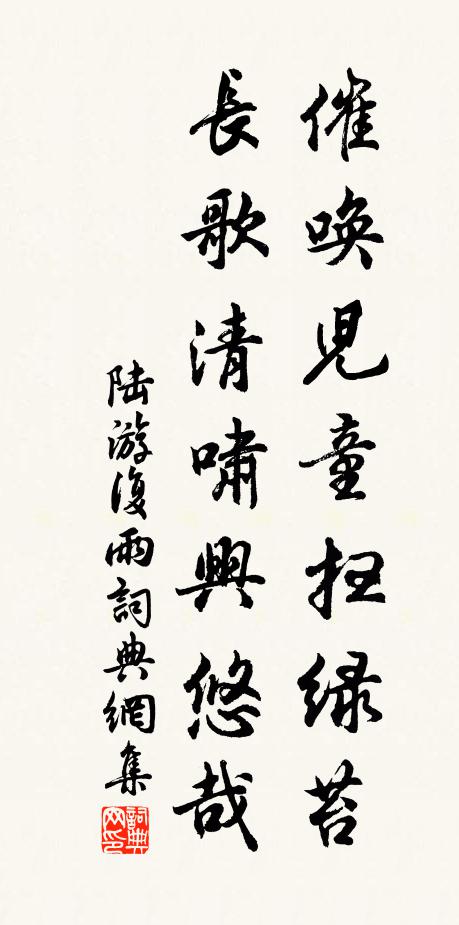 催喚兒童扫绿苔
長歌清嘯興悠哉
陆游復雨詞典網集
詞典网印